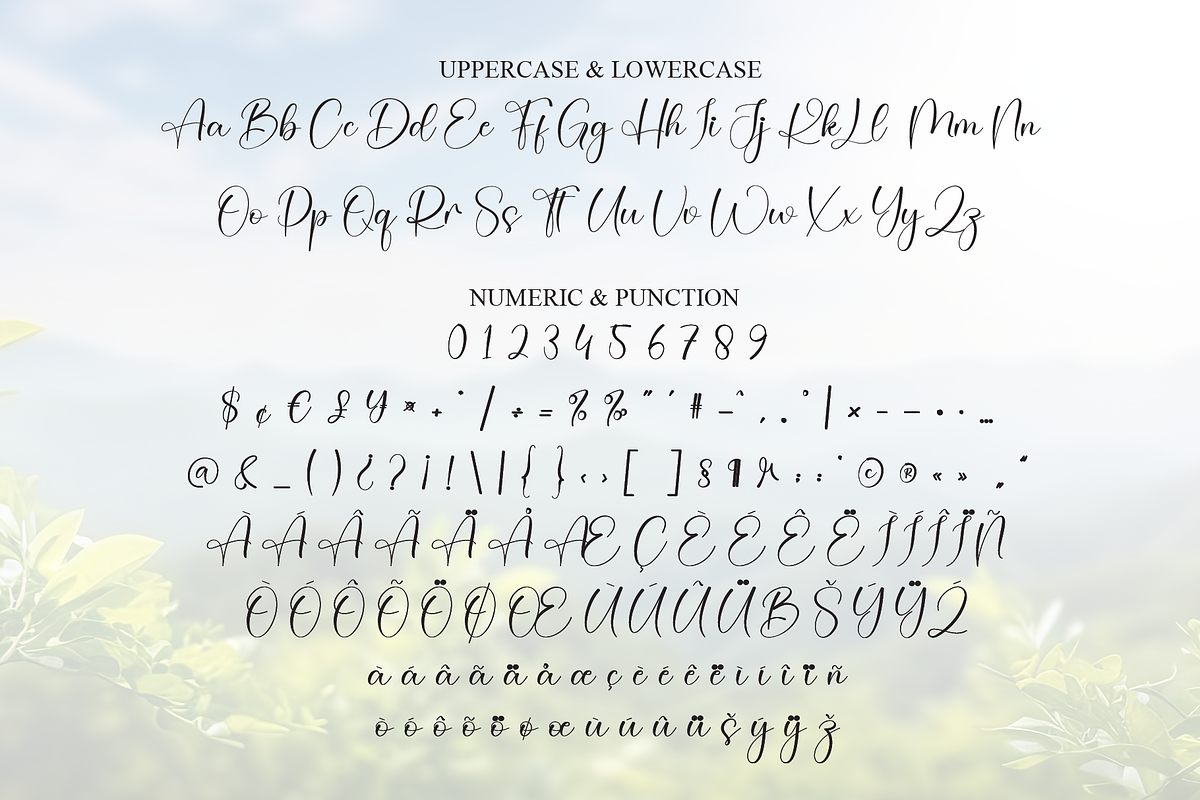 UPPERCASE & LOWERCASE
Aa Bb Cc Dd Ee Ff Gg Hh Ii Jj Kk Ll Mm Nn
Oo Pp Qq Rr Ss Tt Uu Vv Ww Xx Yy Zz
NUMERIC & PUNCTION
0 1 2 3 4 5 6 7 8 9
$ ¢ € £ ¥ ¤ + ˙ / ÷ = % ‰ " ' # – ^ , . ° | × - – • · …
@ & _ ( ) ¿ ? ¡ ! \ | { } ‹ › [ ] § ¶ µ ; : ' © ® « » „ “
À Á Â Ã Ä Å Æ Ç È É Ê Ë Ì Í Î Ï Ñ
Ò Ó Ô Õ Ö Ø Œ Ù Ú Û Ü B Š Ý Ÿ Ž
à á â ã ä å æ ç è é ê ë ì í î ï ñ
ò ó ô õ ö ø œ ù ú û ü š ý ÿ ž